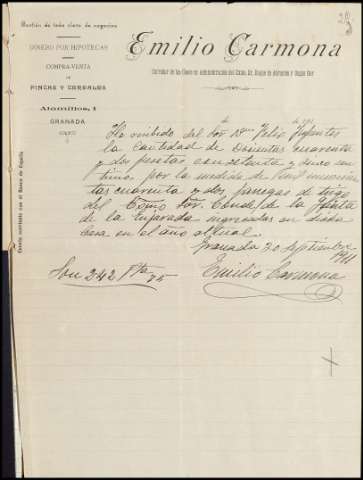 Gestión de toda clase de negocios
DINERO POR HIPOTECAS
COMPRA-VENTA
DE
FINCAS Y CEREALES
Alamillos, 1
GRANADA
Cuenta corriente con el Banco de España
Emilio Carmona
Corredor de los Granos en administración del Excmo. Sr. Duque de Abrantes y
He recibido del Sor Dn Felix Infantes
la Cantidad de Doscientas cuarenta
y dos pesetas con setenta y cinco cen
timos por la medida de
tas cuarenta y dos fanegas de trigo
del Excmo Sor. Conde de la
de la Enjarada ingresadas en dicha
Casa en el año actual.
Granada 30 septiembre
1911
Son 242 Pts 75
Emilio Carmona